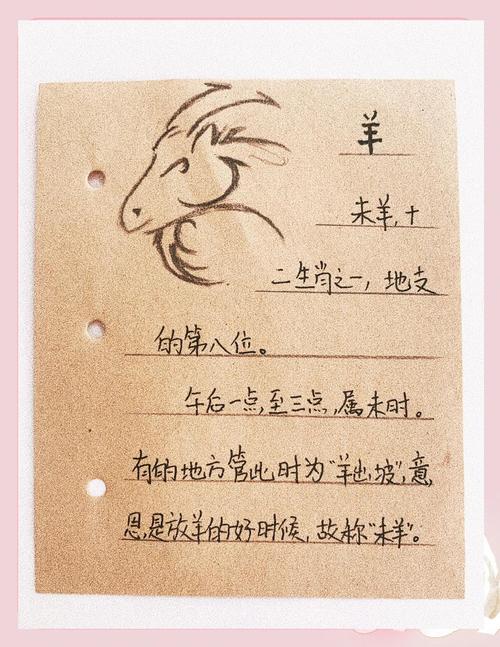 羊
未羊,十
二生肖之一,地支
的第八位。
午后一点,至三点,属未时。
有的地方管此时为“羊出坡”,意
思,是放羊的好时候,故称“未羊”。